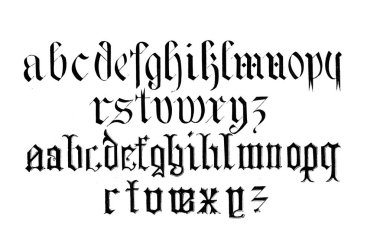 abcdefghiklmnopq
rstvwxyz
aabcdefghiklmnopq
rtvwxyz